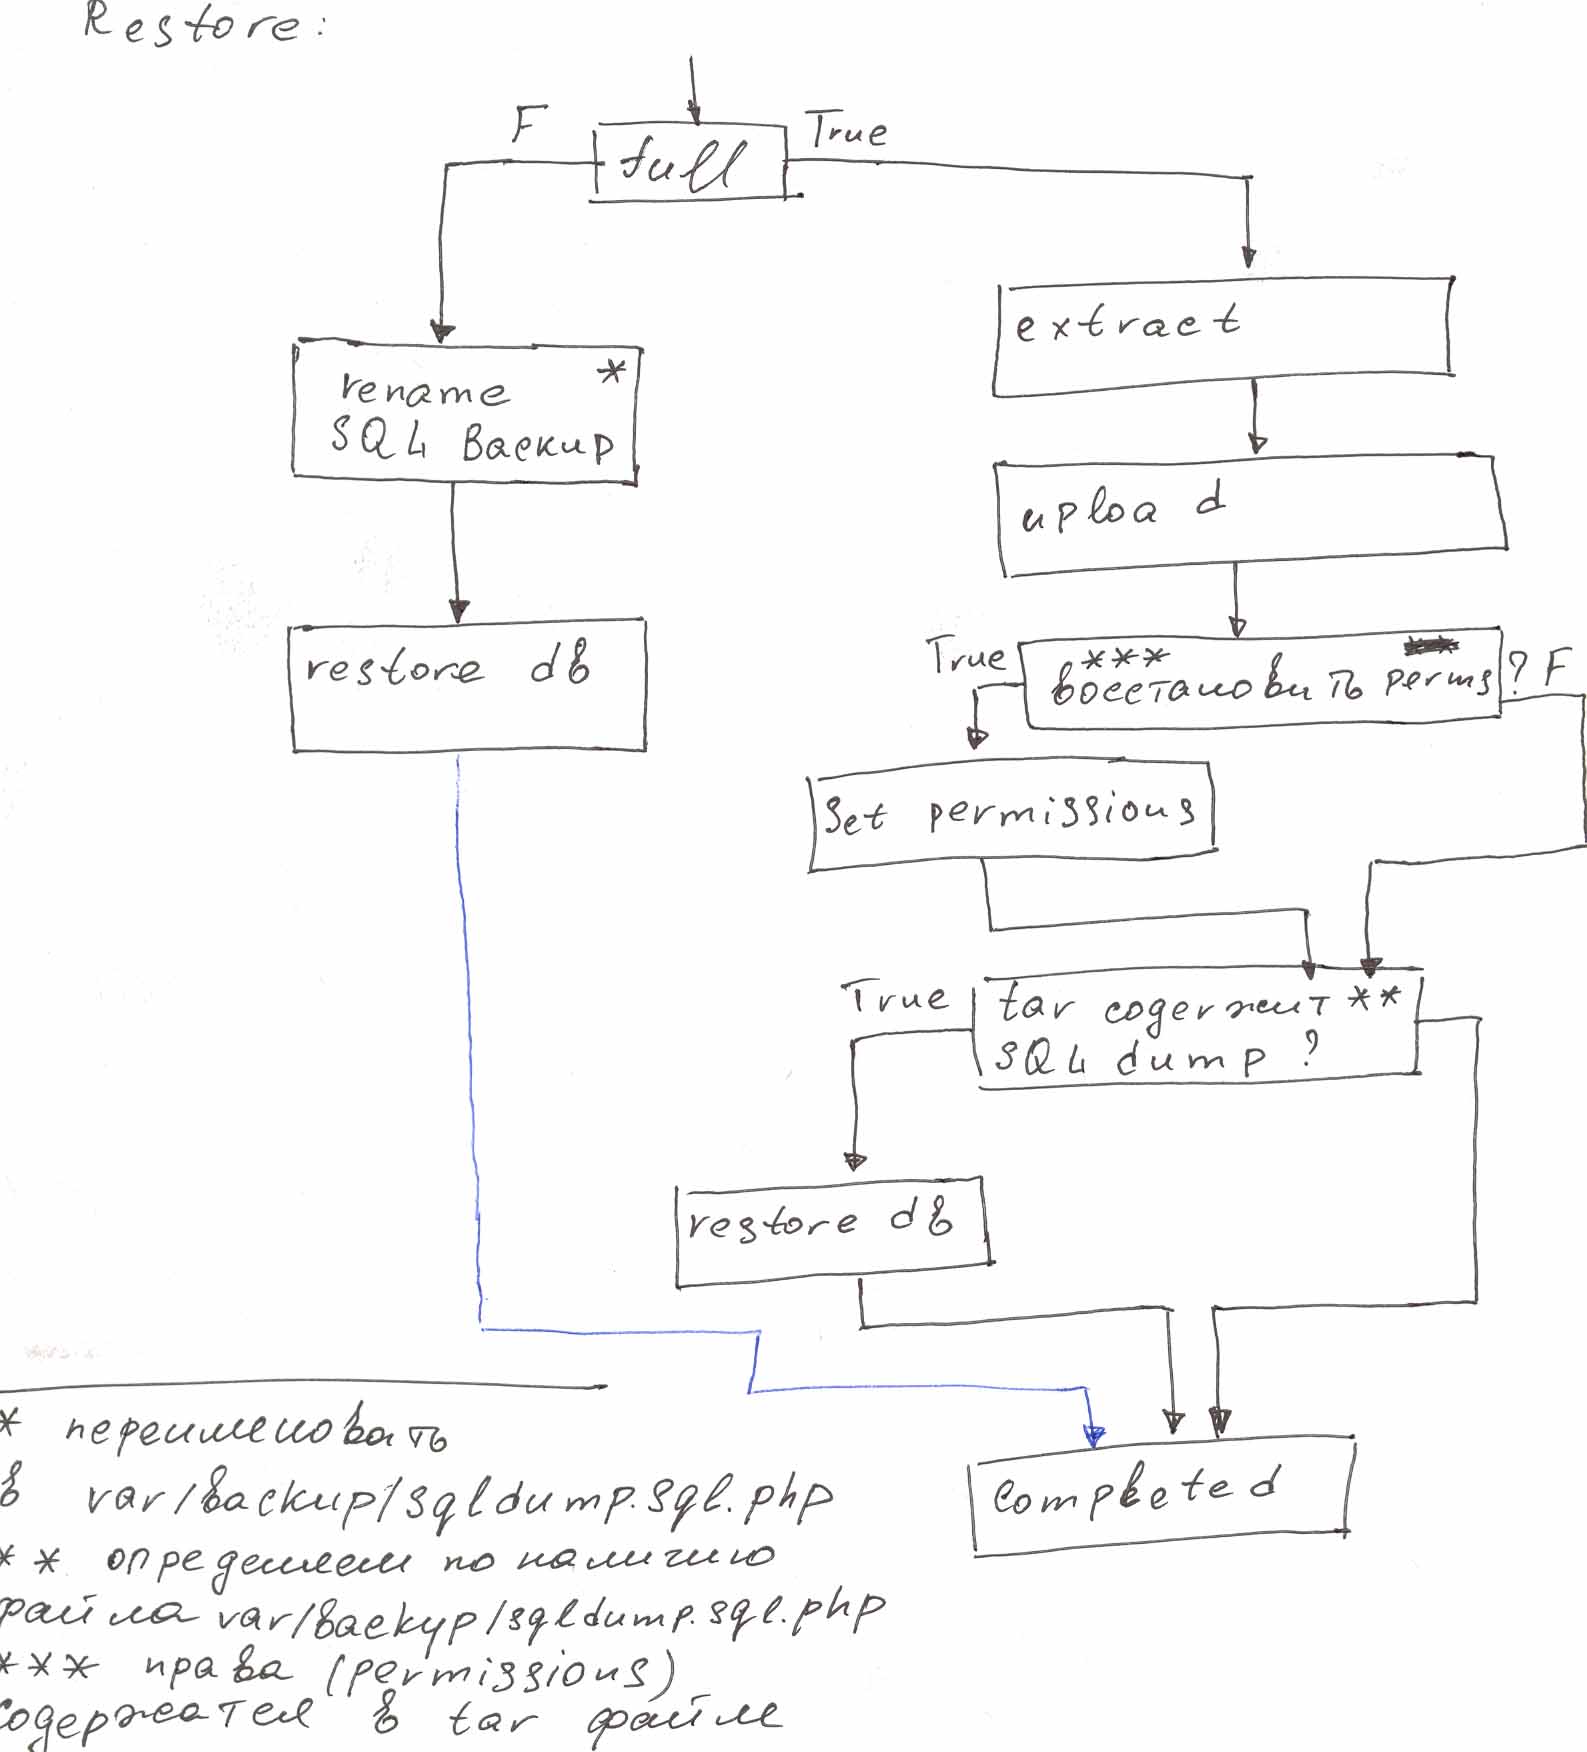 Restore:
F
full
True
extract
rename *
SQL Backup
upload
restore db
True
***
восстановить perms
? F
Set permissions
True
tar содержит **
SQL dump ?
restore db
completed
* переименовать
в var/backup/sqldump.sql.php
** определяем по наличию
файла var/backup/sqldump.sql.php
*** права (permissions)
содержатся в tar файле